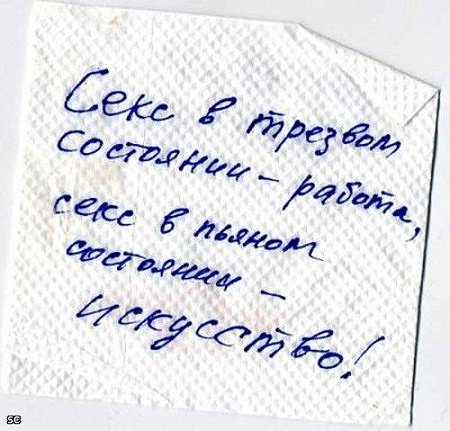 Секс в трезвом
состоянии – работа,
секс в пьяном
состоянии –
искусство!
SC